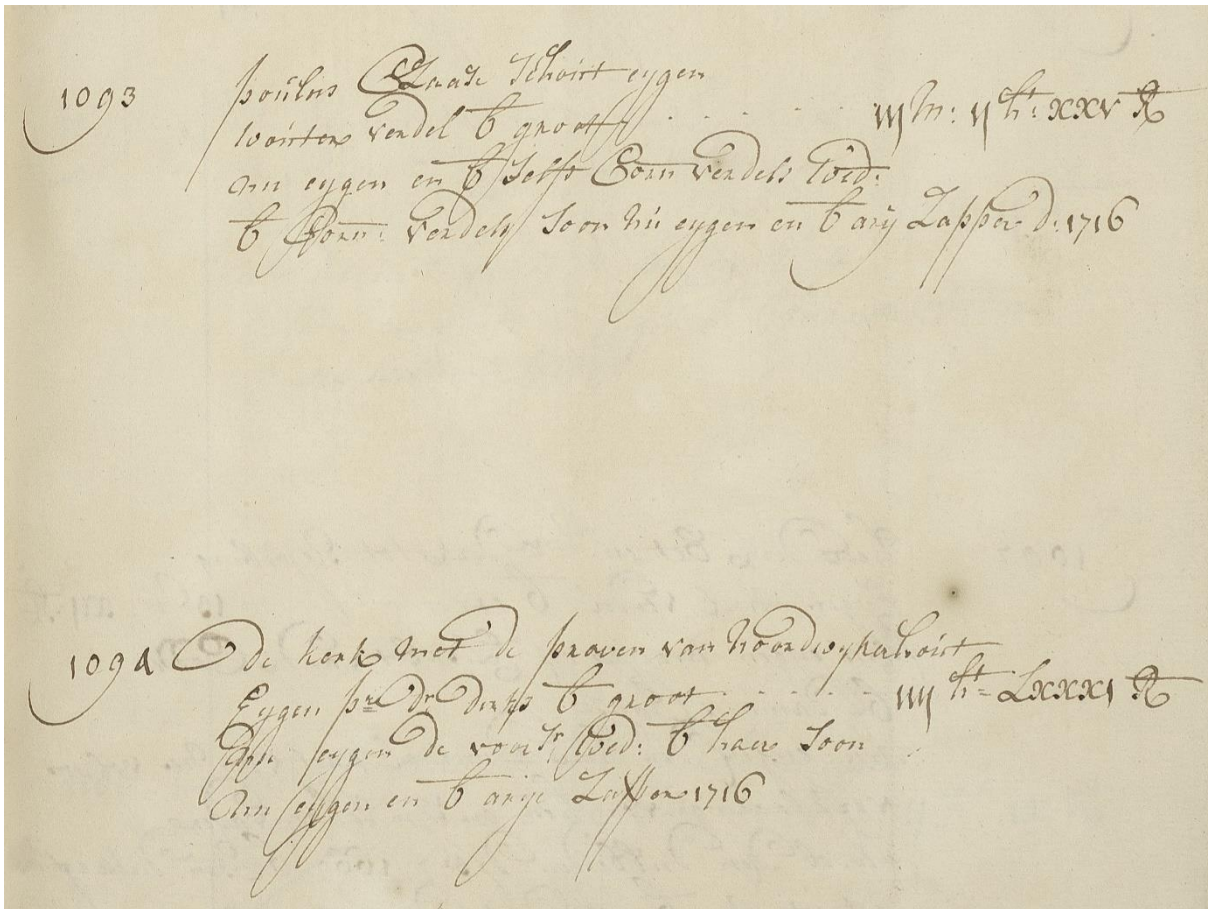 1093 poulus Claase Schout eygen
wouter verdel b groot . . . . iiij m: ij ht: xxv R
nu eygen en b selfs Corn verdels wed:
b Corn: verdels soon nu eygen en b arij Lapper d: 1716
1094 de kerk met de proven van Noordwykerhout
Eygen b groot . . . . iiij ht = Lxxxi R
nu eygen de voors wed: b haer soon
nu eygen en b arije Lapper 1716